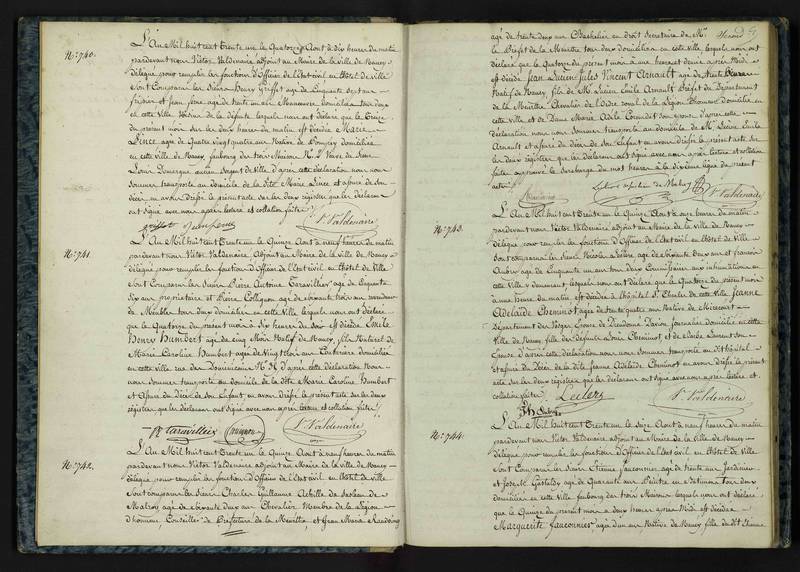 N.° 740.
L'An Mil huit cent Trente un le Quatorze Aout à dix heures du matin
pardevant nous Victor Valdenaire adjoint au Maire de la ville de Nancy
délégué pour remplir les fonctions d'Officier de l'Etat civil en l'hôtel de Ville
Sont Comparus les Sieurs Henry Griffot agé de Cinquante sept ans
fripier et jean agé de trente ans Manoeuvre domiciliés tous deux
en cette Ville Voisins de la défunte lesquels nous ont déclaré que le Treize
du présent mois sur les deux heures du matin est décédée Marie
Lince agée de Quatre Vingt quatre ans Native de domiciliée
en cette ville de Nancy, faubourg des trois Maisons N.° Veuve du Sieur
Louis ancien Sergent de Ville d'après cette déclaration nous nous
sommes transporté au domicile de la dite Marie Lince et assuré de son
décès en avons dressé le présent acte sur les deux registres que les déclarans
ont signé avec nous après lecture et collation faite
V.r Valdenaire
N.° 741.
L'An Mil huit cent Trente un le Quinze Aout à neuf heures du matin
pardevant nous Victor Valdenaire Adjoint au Maire de la ville de Nancy
délégué pour remplir les fonctions d'Officier de l'Etat civil en l'hôtel de Ville
Sont Comparus les Sieurs Pierre Antoine Taravillier agé de Cinquante
Six ans propriétaire et Pierre Collignon agé de soixante trois ans marchand
de Meubles tous deux domiciliés en cette Ville lesquels nous ont déclaré
que le Quatorze du présent mois à Six heures du soir est décédé Emile
Henry Humbert agé de cinq Mois Natif de Nancy, fils Naturel de
Marie Caroline Humbert agée de Vingt trois ans Couturière domiciliée
en cette ville, rue des Dominicains N.° d'après cette déclaration Nous
nous sommes transporté au domicile de la dite Marie Caroline Humbert
et assuré du Décès de son Enfant en avons dressé le présent acte sur les deux
registres que les déclarans ont signé avec nous après lecture et collation faite
Taravillier
V.r Valdenaire
N.° 742.
L'An Mil huit cent Trente un le Quinze Aout à neuf heures du matin
pardevant nous Victor Valdenaire adjoint au Maire de la ville de Nancy
délégué pour remplir les fonctions d'Officier de l'Etat civil en l'hôtel de ville
Sont comparus les Sieurs Charles Guillaume Achille de
Malroy agé de soixante deux ans Chevalier Membre de la Légion
d'honneur, Conseiller de Préfecture de la Meurthe et Jean Marie
agé de trente deux ans Bachelier en droit Secrétaire de M.r
le Préfet de la Meurthe tous deux domiciliés en cette ville, lesquels nous ont
déclaré que le Quatorze du présent mois à une heure et demie après Midi
est décédé Jean Lucien Jules Vincent Arnault agé de
Natif de Nancy, fils de M.r Lucien Emile Arnault Préfet du Département
de la Meurthe Chevalier de l'Ordre royal de la Légion d'honneur domicilié en
cette ville et de Dame Marie Adèle son epouse d'après cette
déclaration nous nous sommes transporté au domicile de M.r Lucien Emile
Arnault et assuré du décès de son Enfant en avons dressé le présent acte sur
les deux registres que les déclarans ont signé avec nous après lecture et collation
faite approuvé la surcharge du mot heures à la dixième ligne du présent
acte
V.r Valdenaire
N.° 743.
L'An Mil huit cent Trente un le Quinze Aout à onze heures du matin
pardevant nous Victor Valdenaire Adjoint au Maire de la Ville de Nancy
délégué pour remplir les fonctions d'Officier de l'Etat civil en l'hôtel de Ville
Sont comparus les Sieurs Nicolas Leclerc agé de soixante deux ans et francois
Aubry agé de Cinquante un ans tous deux Commissaires aux inhumations en
cette Ville y demeurant lesquels nous ont déclaré que le Quatorze du présent mois
à une heure du matin est décédée à l'hôpital S.t Charles de cette Ville Jeanne
Adelaide Cheminot agée de trente quatre ans Native de Mirecourt
Département des Vosges Epouse de Dieudonné journalier domicilié en cette
Ville de Nancy, fille des défunts Louis Cheminot, et de Barbe Laurent son
Epouse d'après cette déclaration nous nous sommes transporté au dit hôpital
et assuré du Décès de la dite Jeanne Adelaide Cheminot en avons dressé le présent
acte sur les deux registres que les déclarans ont signé avec nous après lecture et
collation faite
Leclerc
V.r Valdenaire
N.° 744.
L'An Mil huit cent Trente un le Seize Aout à neuf heures du matin
pardevant nous Victor Valdenaire Adjoint au Maire de la Ville de Nancy
délégué pour remplir les fonctions d'Officier de l'Etat civil, en l'hôtel de Ville
Sont Comparus les Sieurs Etienne Fauconnier agé de trente ans Jardinier
et Joseph Gastaldy agé de Quarante ans tous deux
domiciliés en cette Ville faubourg des trois Maisons lesquels nous ont déclaré
que le Quinze du présent mois à deux heures après Midi est décédée
Marguerite Fauconnier agée d'un an Native de Nancy, fille du dit Etienne